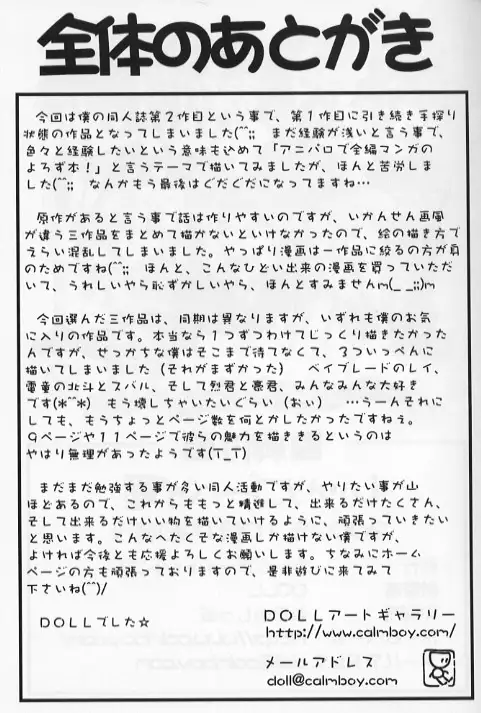 全体のあとがき
今回は僕の同人誌第2作目という事で、第1作目に引き続き手探り
状態の作品となってしまいました(^^;; まだ経験が浅いと言う事で、
色々と経験したいという意味も込めて「アニパロで全編マンガの
よろず本！」と言うテーマで描いてみましたが、ほんと苦労しま
した(^^;; なんかもう最後はぐだぐだになってますね…
原作があると言う事で話は作りやすいのですが、いかんせん画風
が違う三作品をまとめて描かないといけなかったので、絵の描き方で
えらい混乱してしまいました。やっぱり漫画は一作品に絞るの方が身
のためですね(^^;; ほんと、こんなひどい出来の漫画を買っていただ
いて、うれしいやら恥ずかしいやら、ほんとすみませんm(_ _;;)m
今回選んだ三作品は、同期は異なりますが、いずれも僕のお気
に入りの作品です。本当なら1つずつわけてじっくり描きたかった
んですが、せっかちな僕はそこまで待てなくて、3ついっぺんに
描いてしまいました（それがまずかった） ベイブレードのレイ、
電童の北斗とスバル、そして烈君と豪君、みんなみんな大好き
です(*^^*) もう壊しちゃいたいぐらい（おい） …うーんそれに
しても、もうちょっとページ数を何とかしたかったですねぇ。
9ページや11ページで彼らの魅力を描ききるというのは
やはり無理があったようです(T_T)
まだまだ勉強する事が多い同人活動ですが、やりたい事が山
ほどあるので、これからももっと精進して、出来るだけたくさん、
そして出来るだけいい物を描いていけるように、頑張っていきたい
と思います。こんなへたくそな漫画しか描けない僕ですが、
よければ今後とも応援よろしくお願いします。ちなみにホーム
ページの方も頑張っておりますので、是非遊びに来てみて
下さいね(^^)/
DOLLでした☆
DOLLアートギャラリー
http://www.calmboy.com/
メールアドレス
doll@calmboy.com